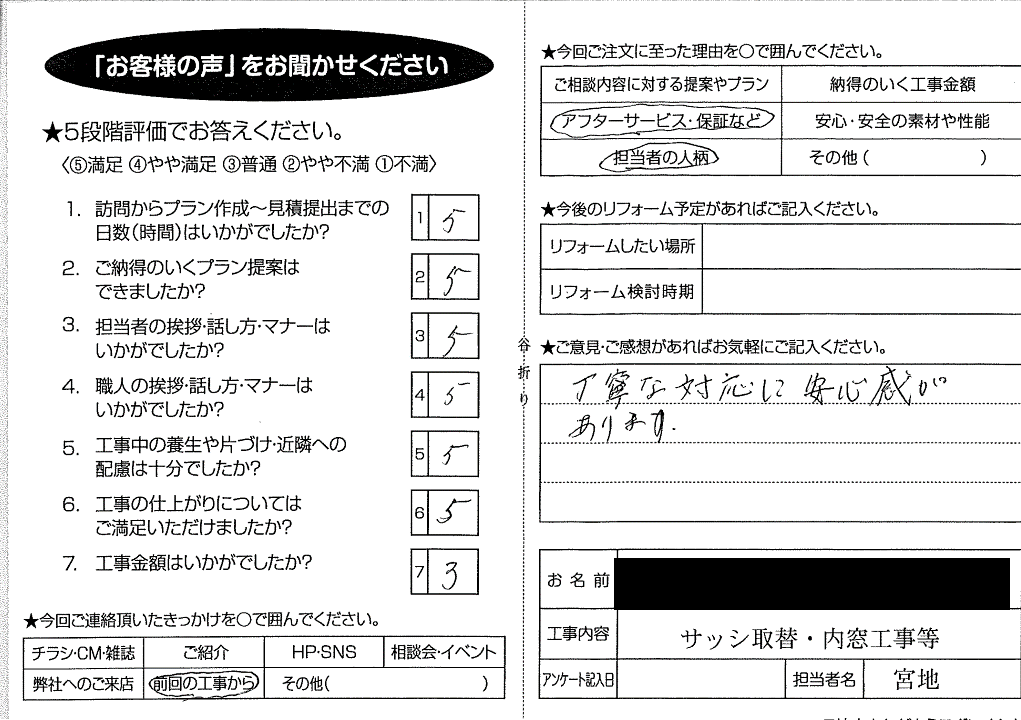 「お客様の声」をお聞かせください
★5段階評価でお答えください。
〈⑤満足 ④やや満足 ③普通 ②やや不満 ①不満〉
1. 訪問からプラン作成〜見積提出までの
日数(時間)はいかがでしたか?
1 5
2. ご納得のいくプラン提案は
できましたか?
2 5
3. 担当者の挨拶・話し方・マナーは
いかがでしたか?
3 5
4. 職人の挨拶・話し方・マナーは
いかがでしたか?
4 5
5. 工事中の養生や片づけ・近隣への
配慮は十分でしたか?
5 5
6. 工事の仕上がりについては
ご満足いただけましたか?
6 5
7. 工事金額はいかがでしたか?
7 3
★今回ご連絡頂いたきっかけを○で囲んでください。
チラシ・CM・雑誌 ご紹介 HP・SNS 相談会・イベント
弊社へのご来店 前回の工事から その他( )
谷折り
★今回ご注文に至った理由を○で囲んでください。
ご相談内容に対する提案やプラン 納得のいく工事金額
アフターサービス・保証など 安心・安全の素材や性能
担当者の人柄 その他( )
★今後のリフォーム予定があればご記入ください。
リフォームしたい場所
リフォーム検討時期
★ご意見・ご感想があればお気軽にご記入ください。
丁寧な対応に安心感が
あります.
お名前
工事内容 サッシ取替・内窓工事等
アンケート記入日 担当者名 宮地